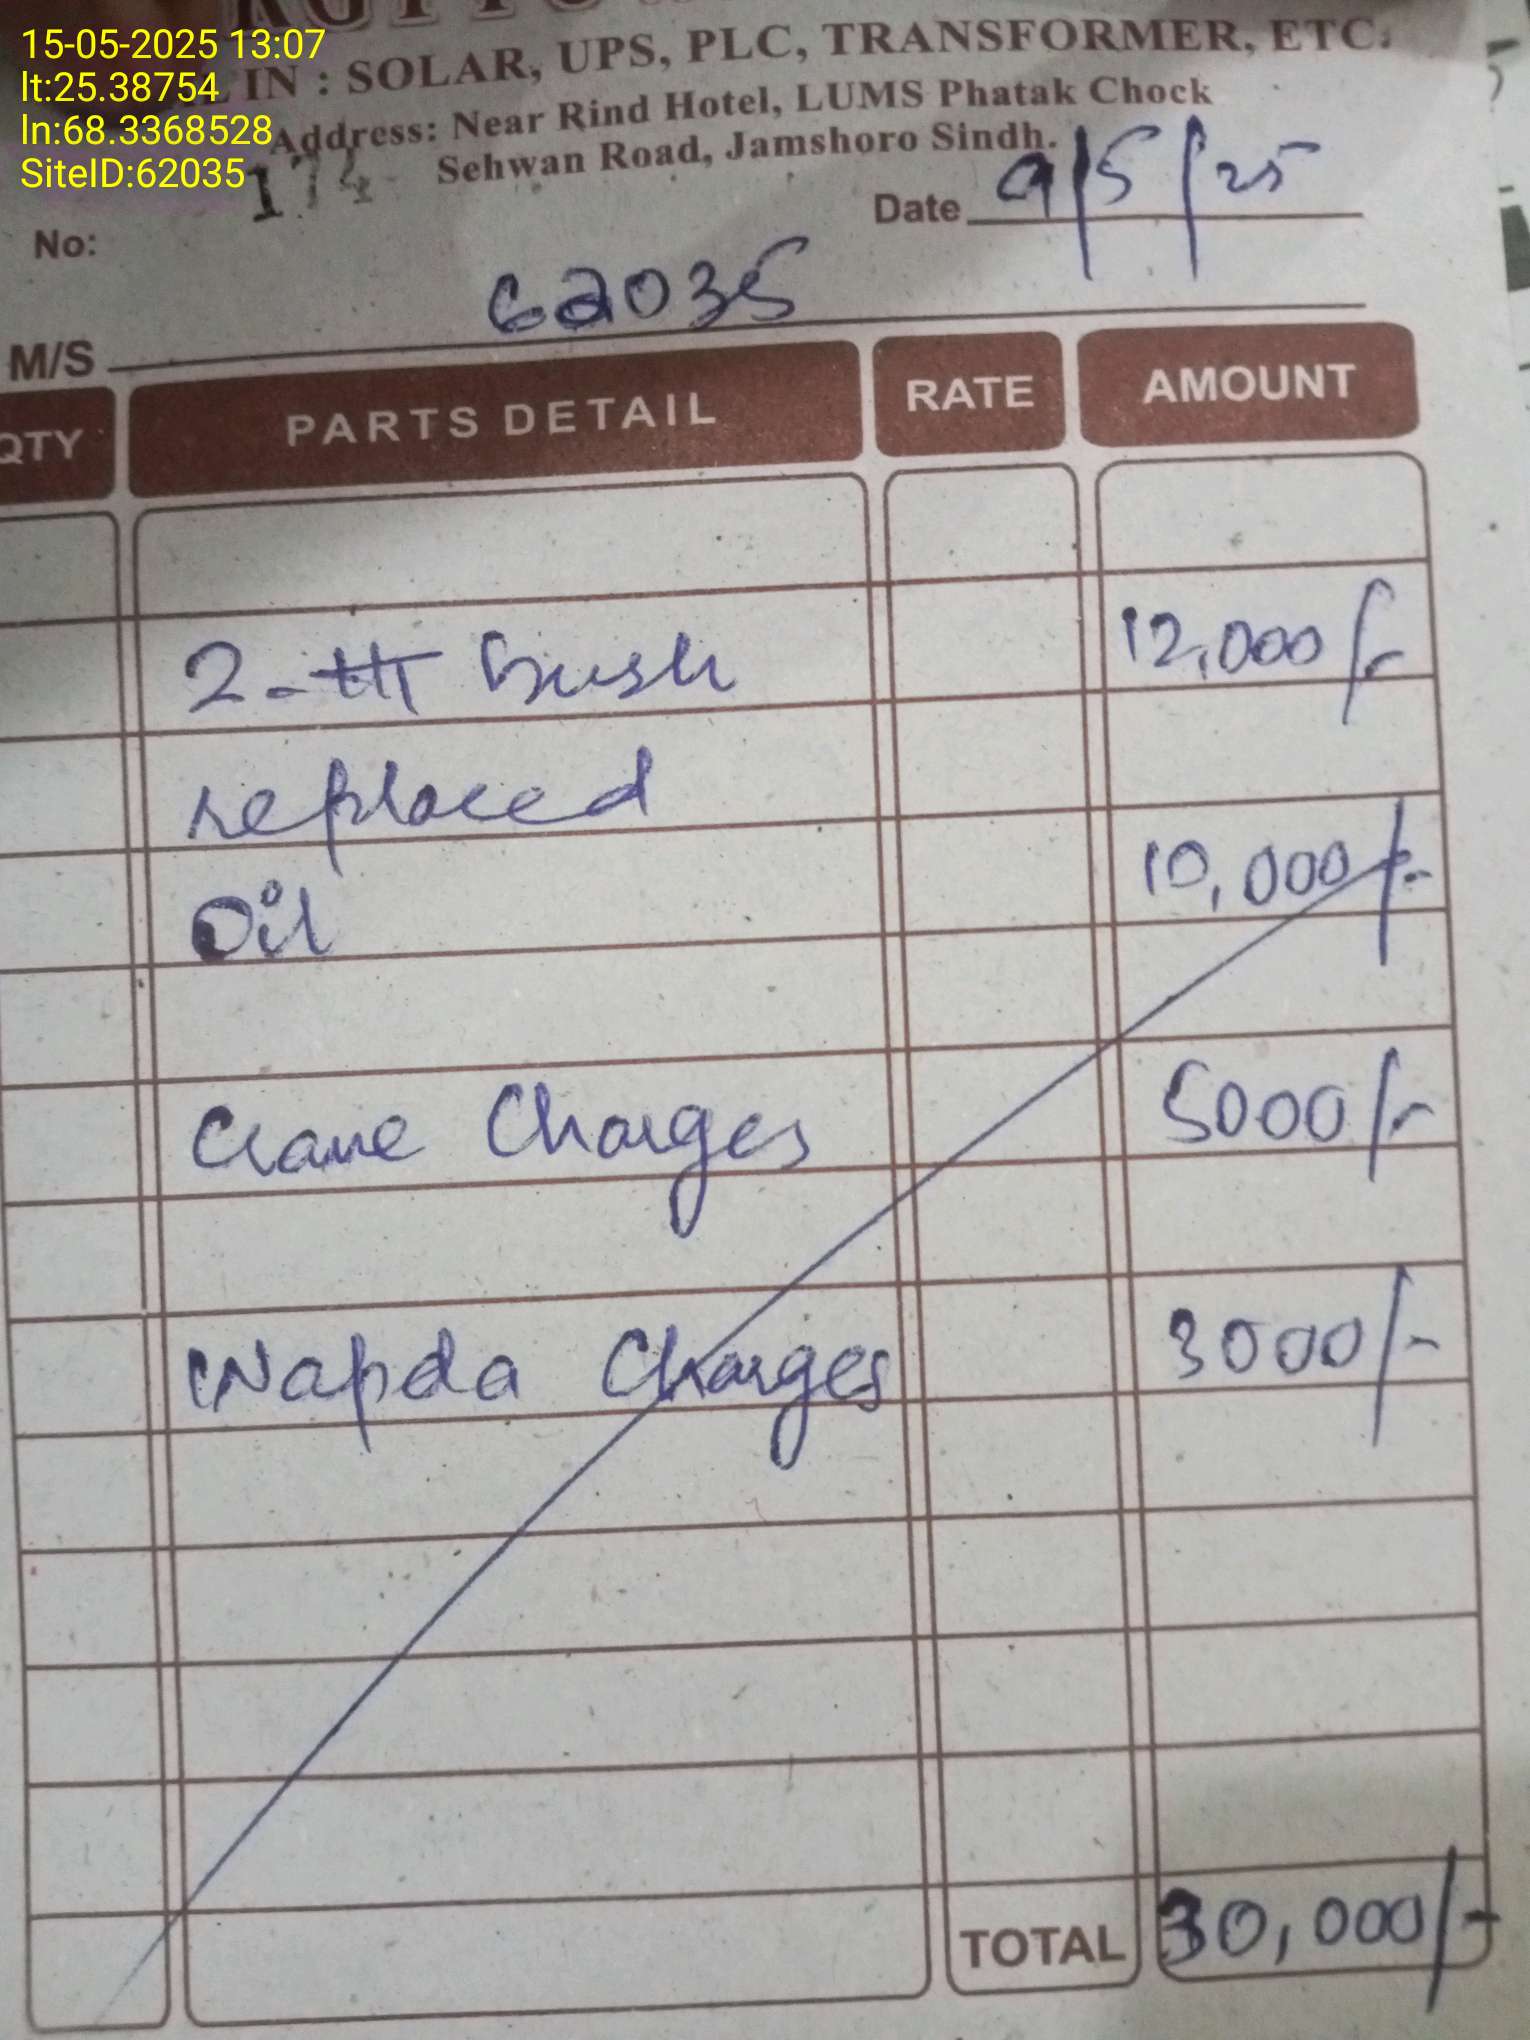 15-05-2025 13:07
lt:25.38754
ln:68.3368528
SiteID:62035
IN : SOLAR, UPS, PLC, TRANSFORMER, ETC.
Address: Near Rind Hotel, LUMS Phatak Chock
Sehwan Road, Jamshoro Sindh.
No: 174 Date 9/5/25
M/S 62035
QTY PARTS DETAIL RATE AMOUNT
2-HT bush 12,000/-
replaced
Oil 10,000/-
Crane Charges 5000/-
Wapda Charges 3000/-
TOTAL 30,000/-